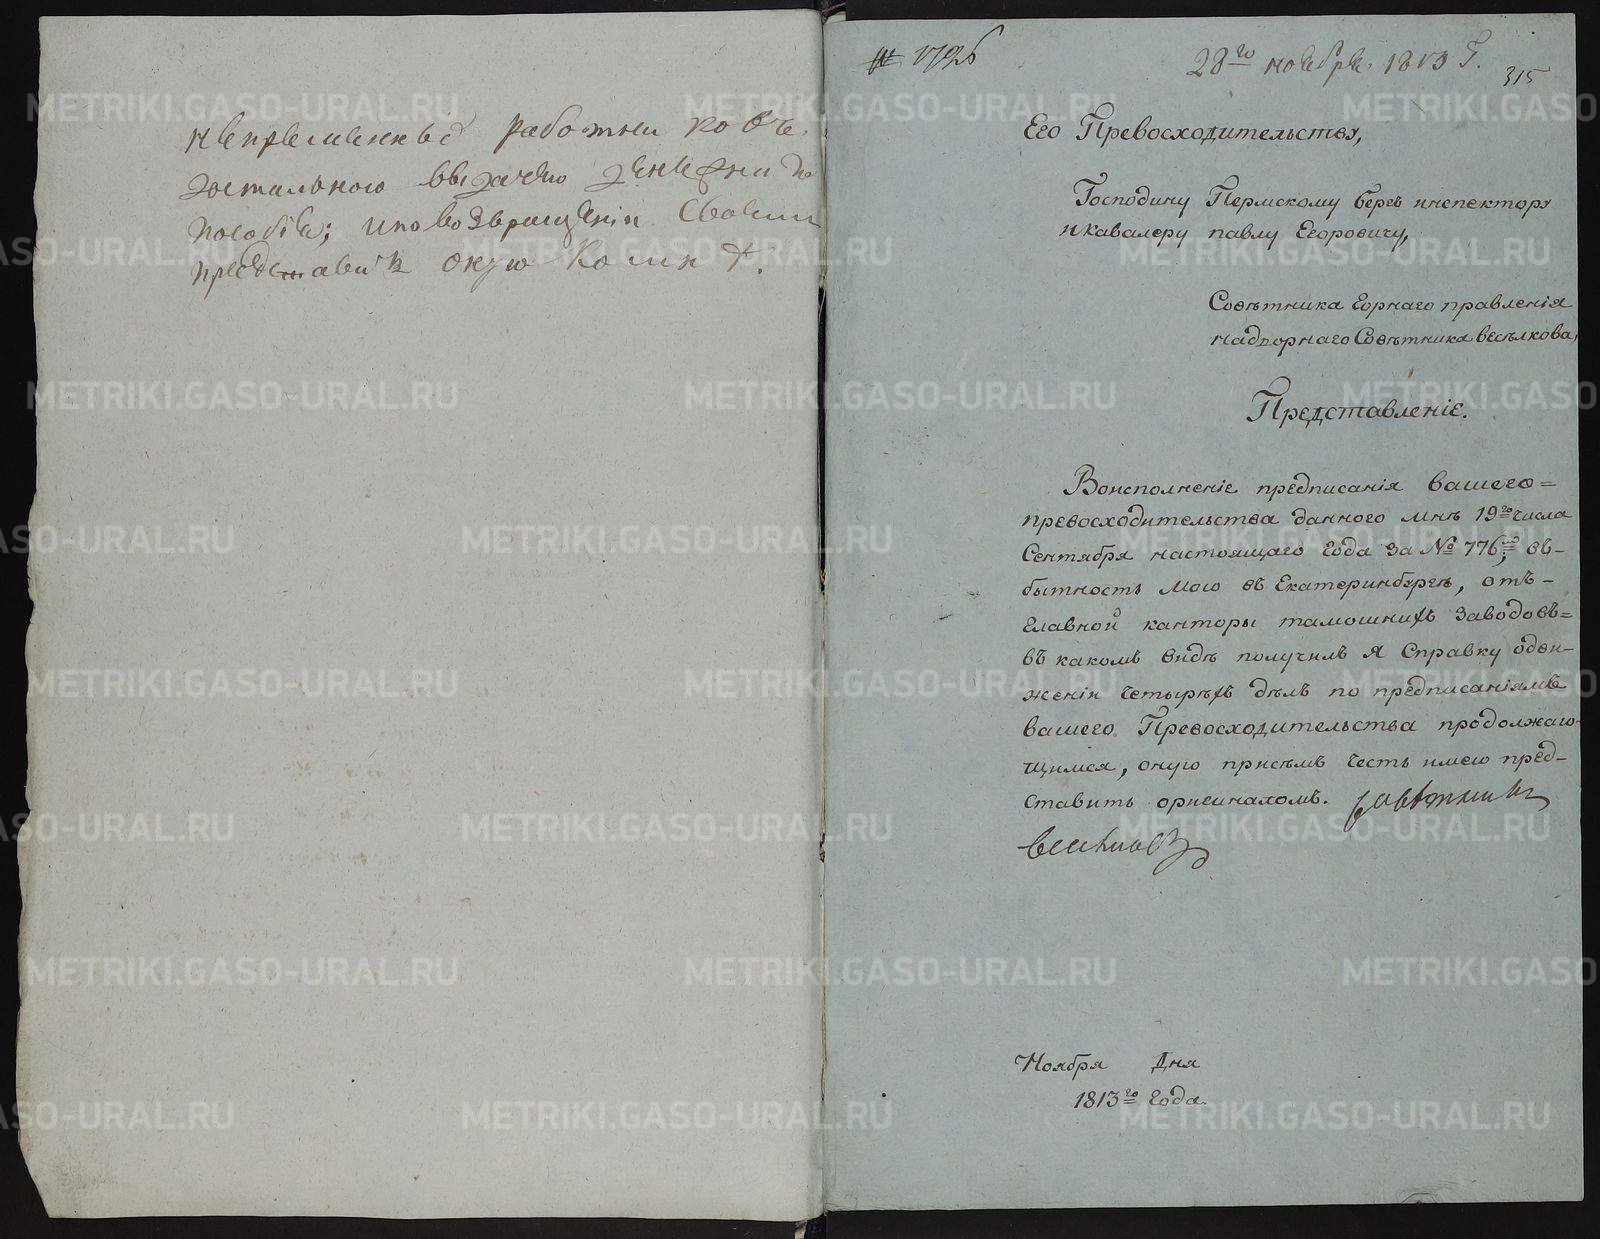 непременныхъ работниковъ.
достальною выдачею денежнаго
пособія; и по возвращеніи своемъ
представить оную ко мнѣ.
№ 1796
28го ноября. 1813 Г.
315
Его Превосходительству,
Господину Пермскому бергъ инспектору
икавалеру павлу Егоровичу,
Совѣтника Горнаго правленія
надворнаго Совѣтника весѣлкова,
Представленіе.
Воисполненіе предписанія вашего=
превосходительства даннаго мнѣ 19го числа
Сентября настоящаго года за № 776; въ-
бытность мою въ Екатеринбургѣ, отъ-
главной канторы тамошнихъ заводовъ=
въ какомъ видѣ получилъ я Справку одви-
женіи четырѣхъ дѣлъ по предписаніямъ
вашего Превосходительства продолжаю-
щимся, оную присѣмъ честь имею пред-
ставить оригиналомъ. Совѣтникъ
весѣлковъ
Ноября Дня
1813го года.